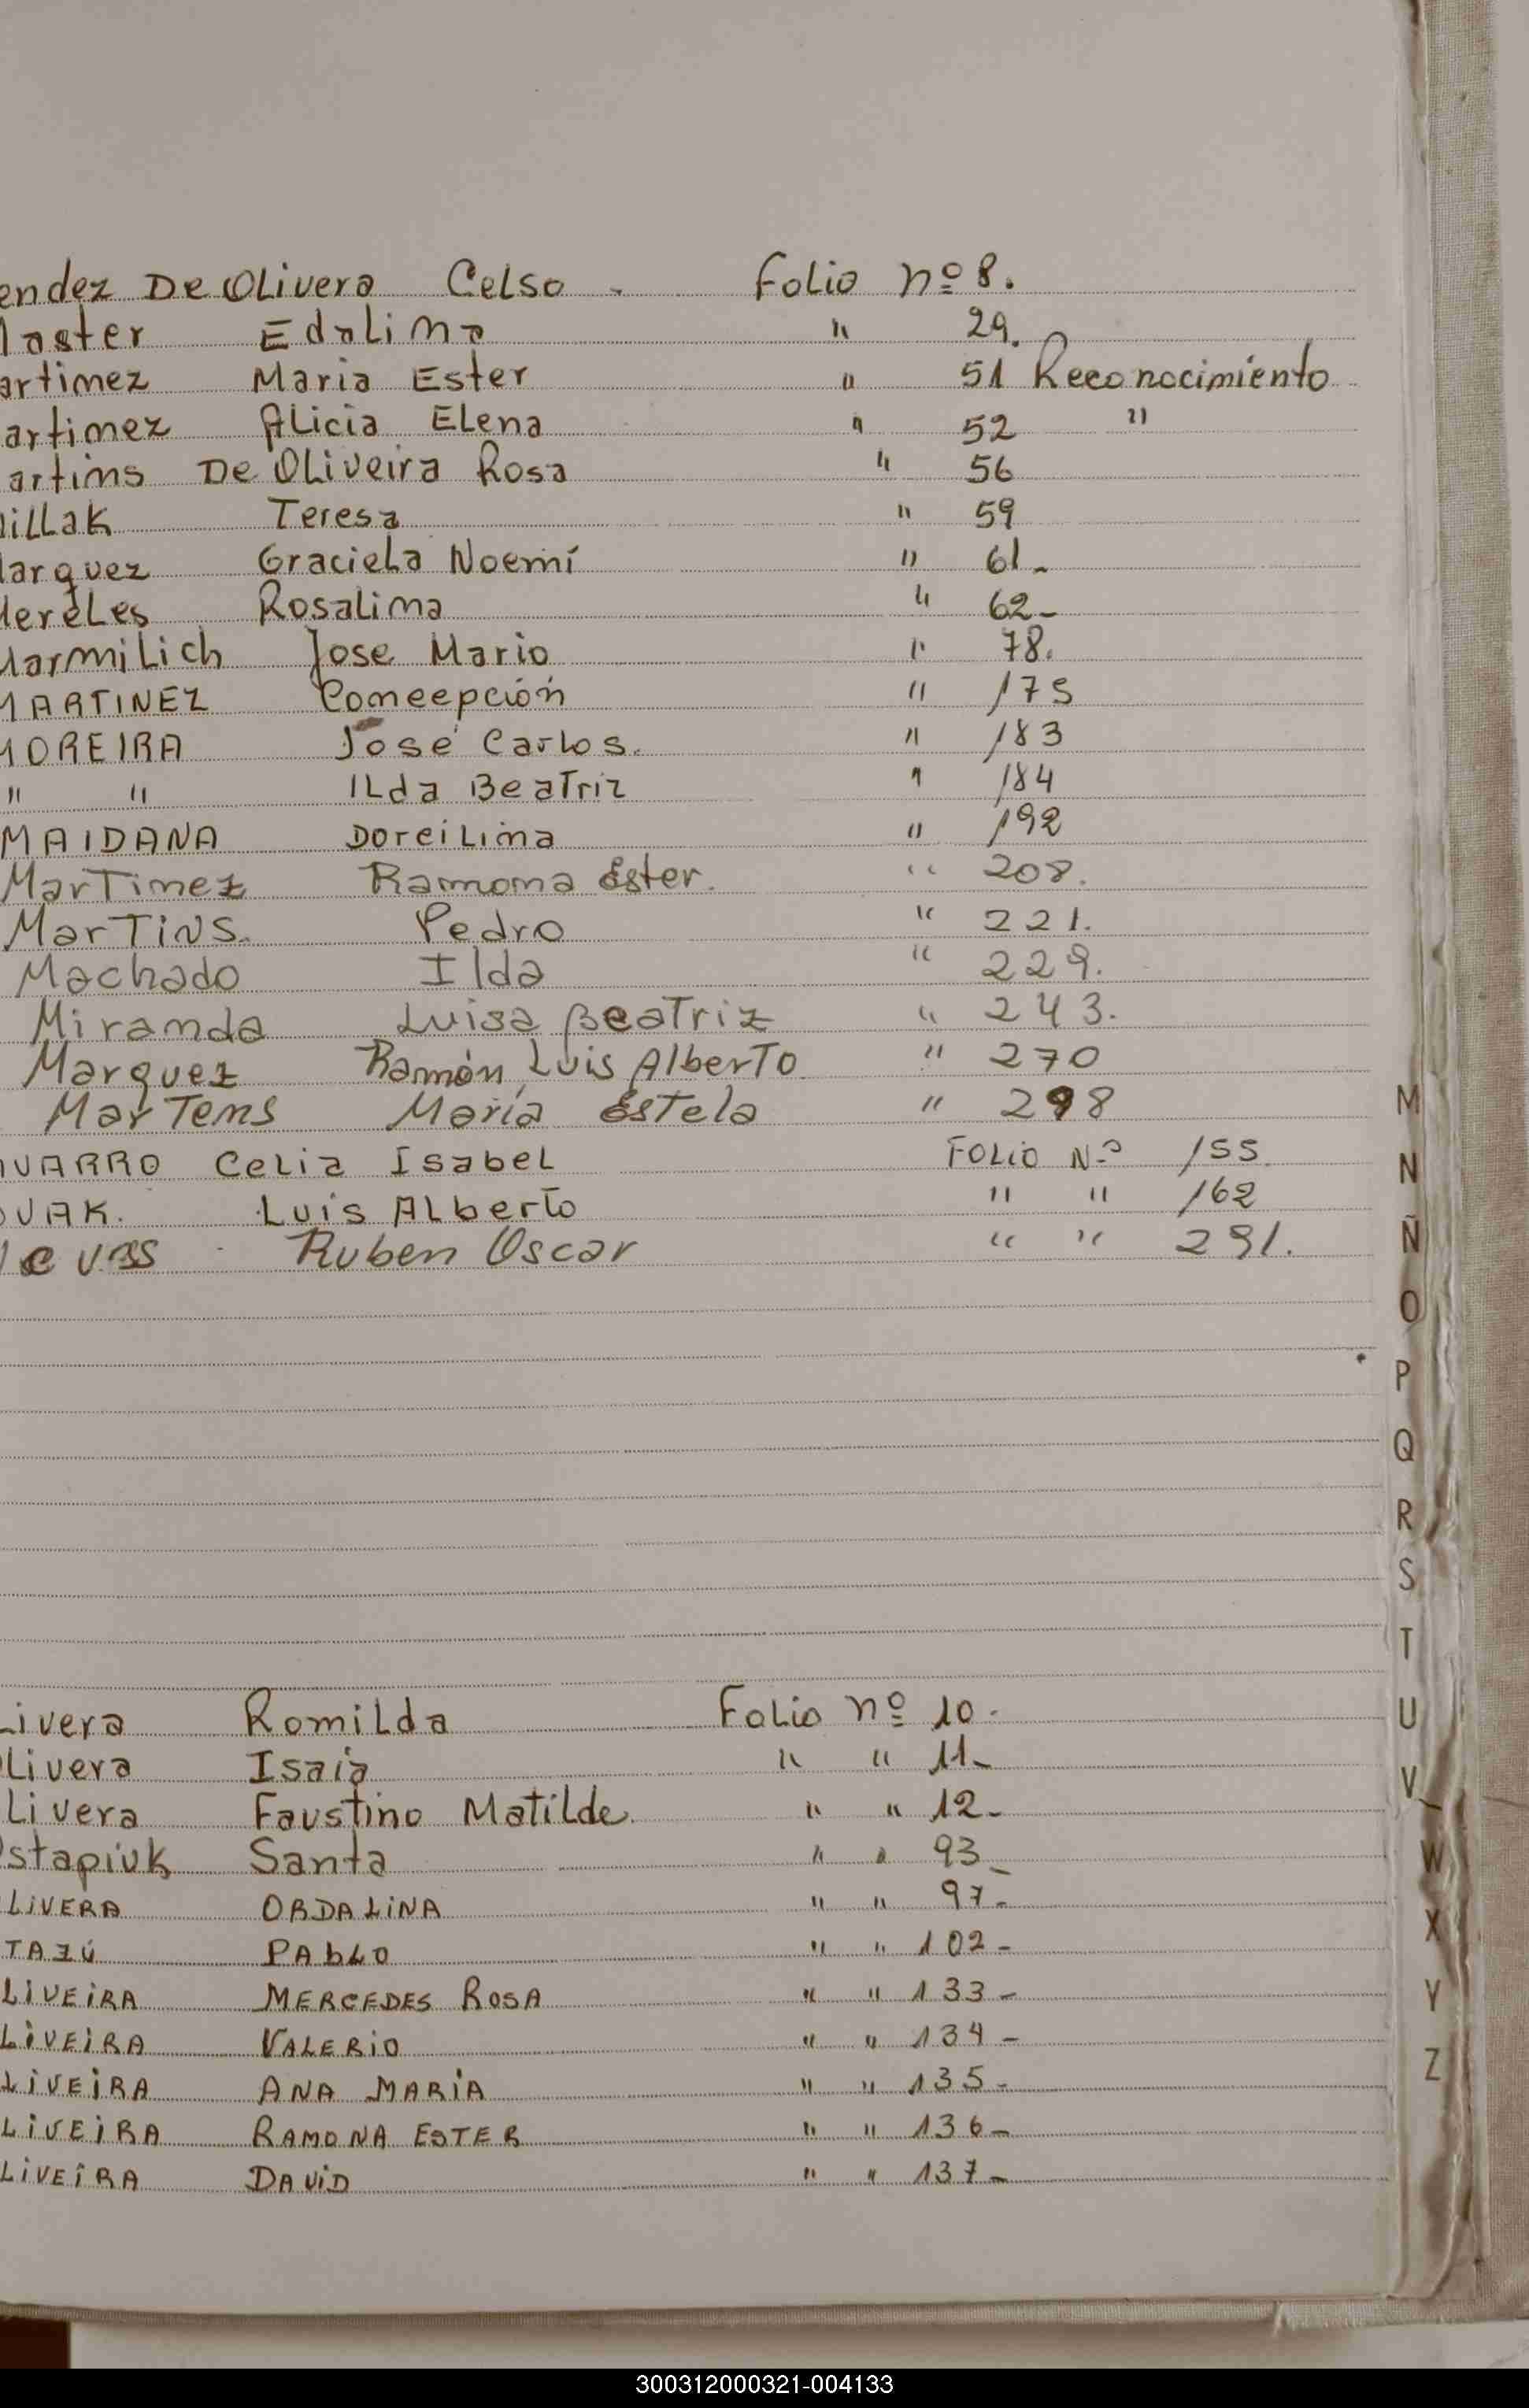 endez De Olivera Celso. Folio nº 8.
laster Edalima " 29.
artimez Maria Ester " 51 Reconocimiento
artimez Alicia Elena " 52 "
artims De Oliveira Rosa " 56
illak Teresa " 59
larquez Graciela Noemí " 61-
lereles Rosalima " 62-
Marmilich Jose Mario " 78.
MARTINEZ Comcepción " 175
MOREIRA José Carlos. " 183
" " Ilda Beatriz " 184
MAIDANA Dorcilima " 192
Martimez Ramoma Ester. " 208.
Martins. Pedro " 221.
Machado Ilda " 229.
Miramda Luisa Beatriz " 243.
Marquez Ramón Luis Alberto " 270
Martems María Estela " 298
AVARRO Celia Isabel Folio Nº 155
OVAK. Luis Alberto " " 162
Ruben Oscar " " 291.
Livera Romilda Folio nº 10.
Livera Isaia " " 11-
Livera Faustino Matilde. " " 12-
Ostapiuk Santa " " 93-
LIVERA ORDALINA " " 97-
TAZÚ PABLO " " 102-
LIVEIRA MERCEDES ROSA " " 133-
LIVEIRA VALERIO " " 134-
LIVEIRA ANA MARÍA " " 135-
LIVEIRA RAMONA ESTER " " 136-
LIVEIRA DAVID " " 137-
M
N
Ñ
O
P
Q
R
S
T
U
V
W
X
Y
Z
300312000321-004133